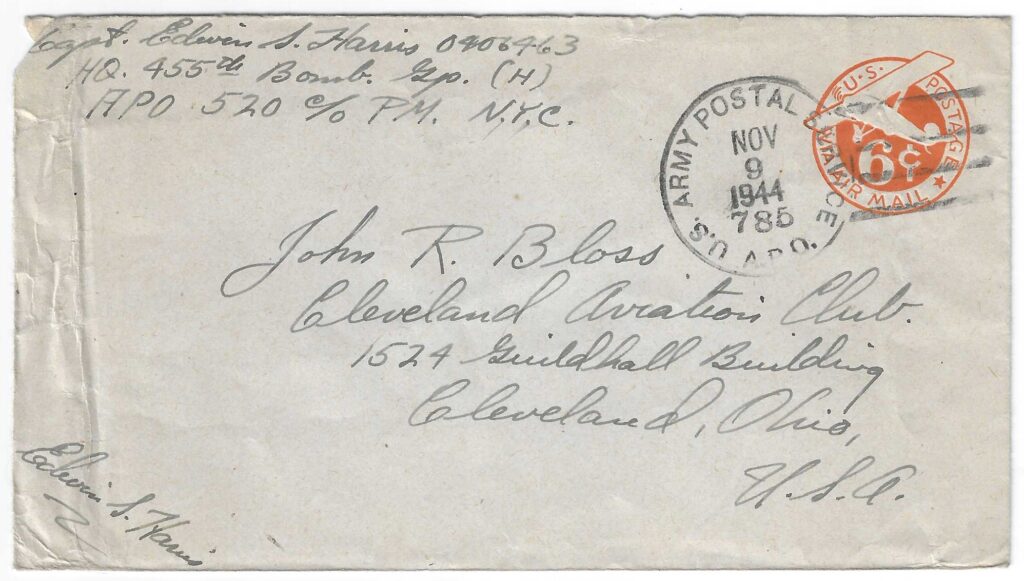 Capt. Edwin S. Harris 0406463
HQ. 455th Bomb. Gp. (H)
APO 520 c/o P.M. N.Y.C.
U.S. POSTAGE
6¢
VIA AIR MAIL
U.S. ARMY POSTAL SERVICE
NOV
9
1944
785
A.P.O.
John R. Bloss
Cleveland Aviation Club.
1524 Guildhall Building
Cleveland, Ohio,
U.S.A.
Edwin S. Harris